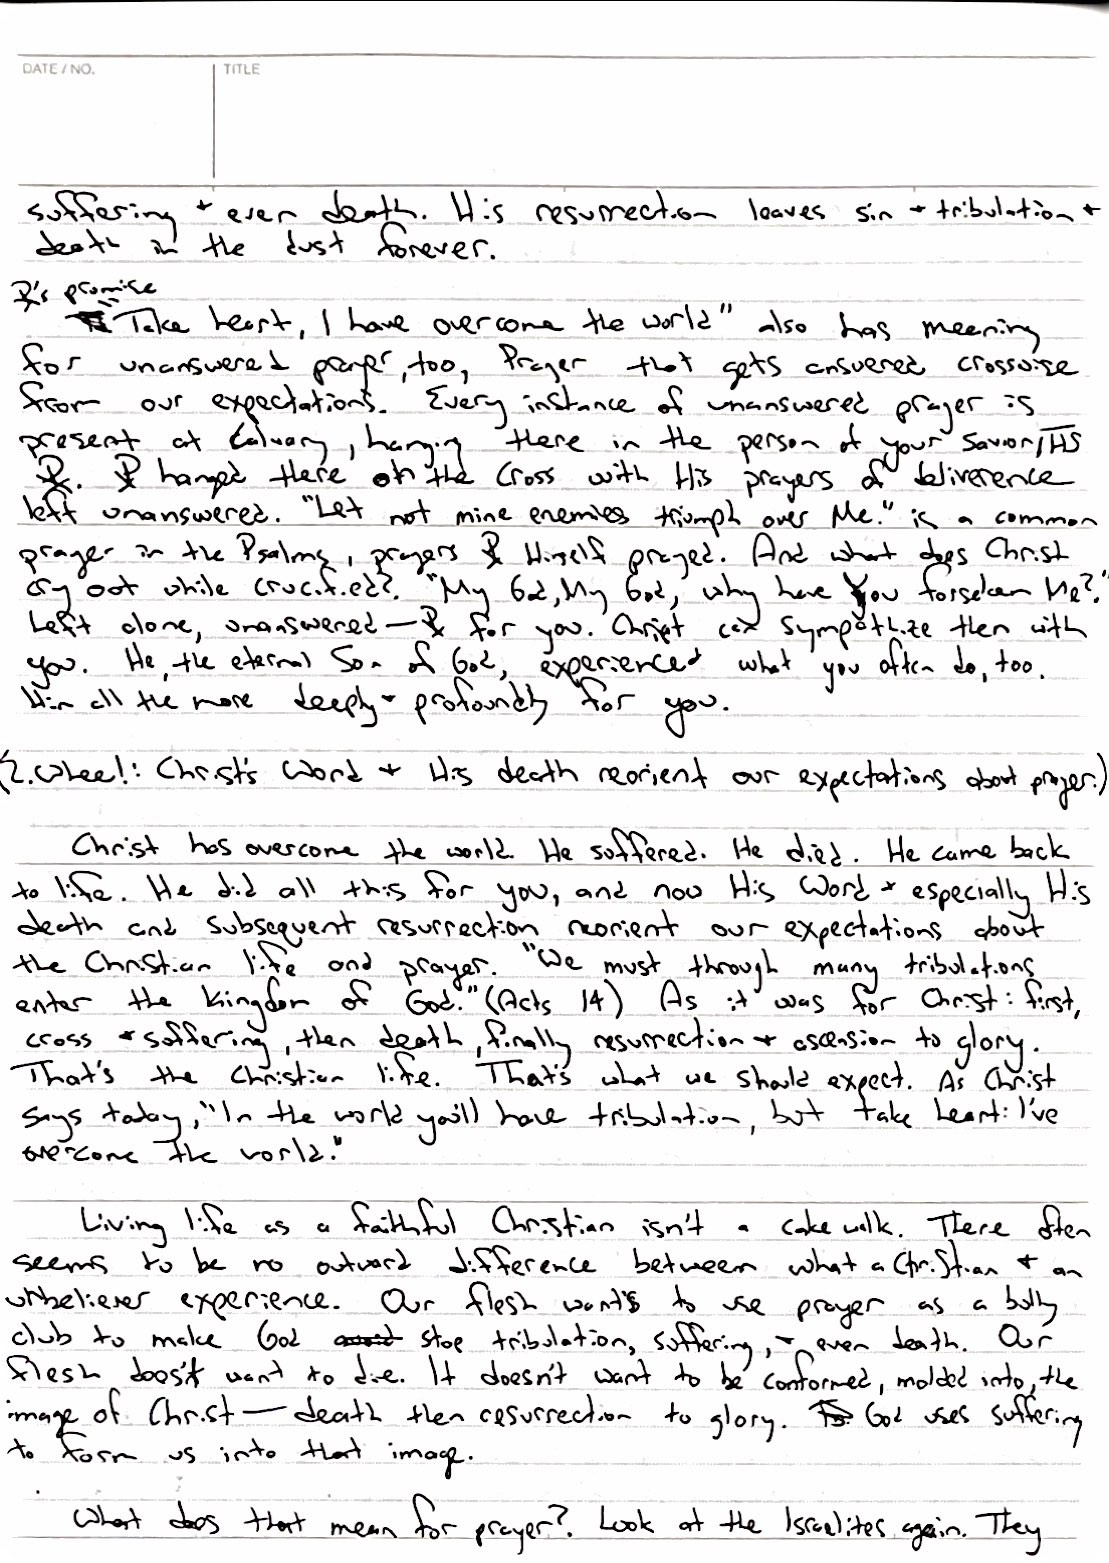 DATE / NO.
TITLE
suffering + even death. His resurrection leaves sin + tribulation +
death in the dust forever.
☧'s promise
"Take heart, I have overcome the world" also has meaning
for unanswered prayer, too, Prayer that gets answered crosswise
from our expectations. Every instance of unanswered prayer is
present at Calvary, hanging there in the person of your Savior, IHS
☧. ☧ hanged there on the Cross with His prayers of deliverence
left unanswered. "Let not mine enemies triumph over Me." is a common
prayer in the Psalms, prayers ☧ Himself prayed. And what does Christ
cry out while crucified? "My God, My God, why have You forsaken Me?"
Left alone, unanswered — ☧ for you. Christ can sympathize then with
you. He, the eternal Son of God, experienced what you often do, too.
Him all the more deeply + profoundly for you.
(2. Whee!: Christ's Word + His death reorient our expectations about prayer.)
Christ has overcome the world. He suffered. He died. He came back
to life. He did all this for you, and now His Word + especially His
death and subsequent resurrection reorient our expectations about
the Christian life and prayer. "We must through many tribulations
enter the Kingdom of God." (Acts 14) As it was for Christ: first,
cross + suffering, then death, finally resurrection + ascension to glory.
That's the Christian life. That's what we should expect. As Christ
says today, "In the world you'll have tribulation, but take heart: I've
overcome the world."
Living life as a faithful Christian isn't a cake walk. There often
seems to be no outward difference between what a Christian + an
unbeliever experience. Our flesh wants to use prayer as a bully
club to make God stop tribulation, suffering, + even death. Our
flesh doesn't want to die. It doesn't want to be conformed, molded into, the
image of Christ — death then resurrection to glory. God uses suffering
to form us into that image.
What does that mean for prayer? Look at the Israelites again. They